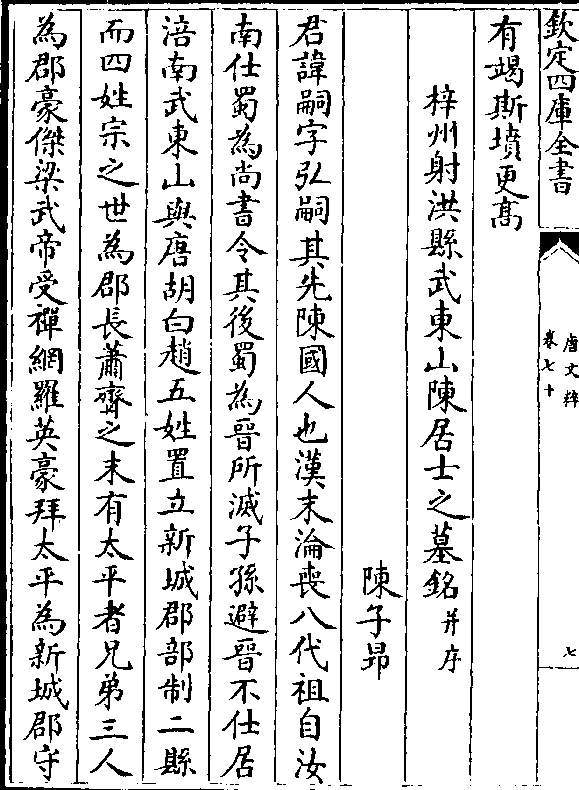 欽定四庫全書
唐文粹
卷七十
七
有竭斯墳更高
梓州射洪縣武東山陳居士之墓銘并序
陳子昂
君諱嗣字弘嗣其先陳國人也漢末淪喪八代祖自汝
南仕蜀為尚書令其後蜀為晉所滅子孫避晉不仕居
涪南武東山與唐胡白趙五姓置立新城郡部制二縣
而四姓宗之世為郡長蕭齊之末有太平者兄弟三人
為郡豪傑梁武帝受禪網羅英豪拜太平為新城郡守